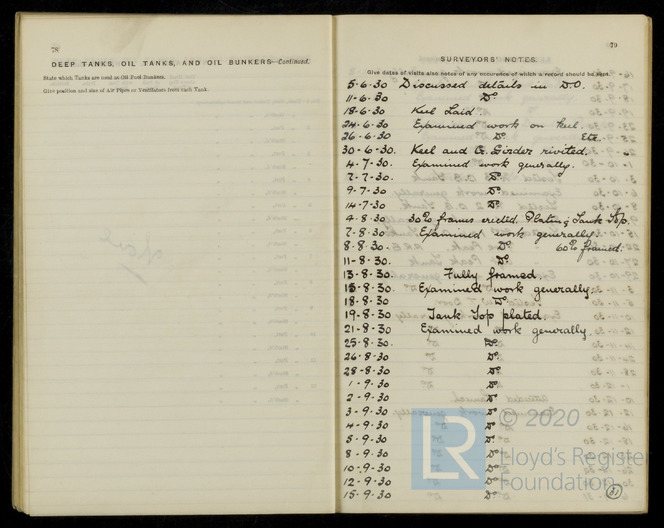 78
DEEP TANKS, OIL TANKS, AND OIL BUNKERS—Continued.
State which Tanks are used as Oil Fuel Bunkers.
Give position and size of Air Pipes or Ventilators from each Tank.
79
SURVEYORS' NOTES.
Give dates of visits also notes of any occurence of which a record should be kept.
5-6-30 Discussed details in D.O.
11-6-30 Do.
18-6-30 Keel Laid.
24-6-30 Examined work on keel.
26-6-30 Do. Etc.
30-6-30. Keel and Cr. Girder rivited.
4-7-30. Examined work generally.
7-7-30. Do.
9-7-30 Do.
14-7-30 Do.
4-8-30 30% frames erected. Plating Tank Top.
7-8-30 Examined work generally.
8-8-30. Do. 60% framed.
11-8-30. Do.
13-8-30. Fully framed.
15-8-30. Examined work generally.
18-8-30 Do.
19-8-30 Tank Top plated.
21-8-30 Examined work generally.
25-8-30. Do.
26-8-30 Do.
28-8-30 Do.
1-9-30 Do
2-9-30 Do
3-9-30 Do
4-9-30 Do
5-9-30 Do
8-9-30 Do
10-9-30 Do
12-9-30 Do
15-9-30 Do
31
LR
© 2020
Lloyd's Register
Foundation